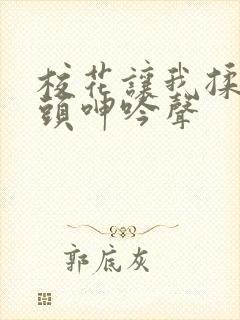 校花讓我揉
頭呻吟聲
郭底灰